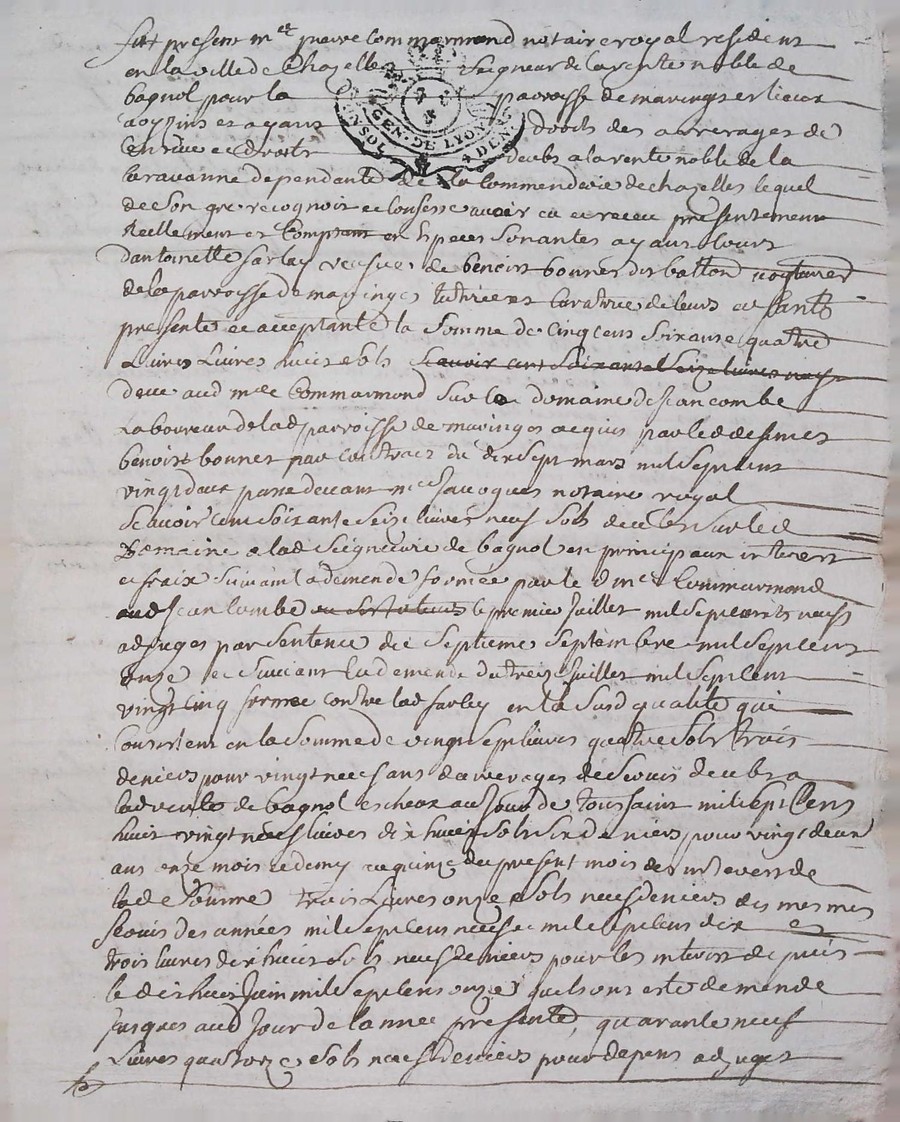 fut present me pierre Commarmond notaire royal resident
en la ville de Chazelles Seigneur de la rente noble de
bagnol pour la parroisse de maringes et lieux
GEN. DE LYON
voizins et ayant droits des arrerages de
Servis et droits deubs a la rente noble de la
baravanne dependante de la Commenderie de chazelles lequel
de son gre recognoit et confesse avoir eu et receu presentement
Reellement et Comptant en Especes Sonantes ayant cours
dantoinette farlay veufve de benoist bonnet dit batton
de la parroisse de maringes tutrice et Curatrice de leurs enfants
presente et acceptante la Somme de Cinq cens Soixante quatre
Livres Livres huict sols scavoir cent soixante et seize livres neuf
deue aud me Commarmond Sur le domaine de Jean combe
Laboureur de lad parroisse de maringes acquis par led defunct
benoist bonnet par contract du dix sept mars mil sept cent
vingt deux passe devant me notaire royal
Scavoir cent Soixante Seize livres neuf sols deues Sur led
Domaine a lad Seigneurie de bagnol en principaux interest
et fraix Suivant la demende formee par led me Commarmond
aud Jean Combe le premier Juillet mil sept cents neuf
adjuges par Sentence du Septieme Septembre mil sept cent
onze et suivant la demende du trois Juillet mil sept cent
vingt cinq formee contre lad farley en la Susd qualite qui
Consistent en la Somme de vingt sept livres quatre sols trois
deniers pour vingt neuf ans darrerages de Servis deubs a
lad rente de bagnol escheux au Jour de toussaint mil sept Cens
huit vingt neuf livres dix huict sols six deniers pour vingt deux
ans onze mois et demy au quinze du present mois dinterest de
lad Somme trois Livres onze sols neuf deniers des mesmes
Servis des années mil sept cens neuf et mil sept cens dix et
trois livres dix huict sols neuf deniers pour les interest depuis
le dix huit Juin mil Sept Cens onze quils ont este demende
Jusques aud Jour de lannee presente, quarante neuf
Livres quatorze sols neuf deniers pour depens adjuges